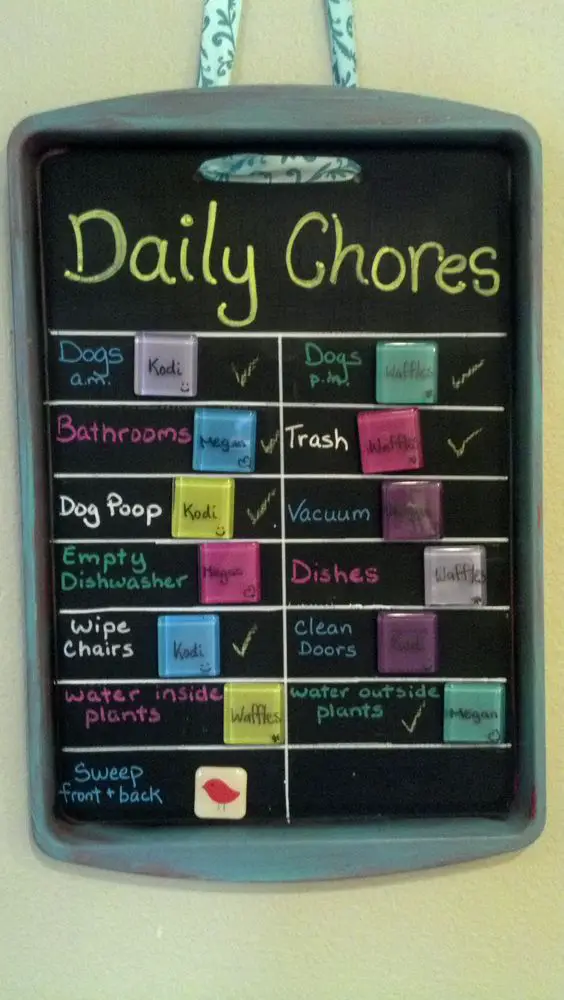 Daily Chores
Dogs a.m.
Kodi
Dogs p.m.
Waffles
Bathrooms
Megan
Trash
Waffles
Dog Poop
Kodi
Vacuum
Empty
Dishwasher
Megan
Dishes
Waffles
Wipe
Chairs
Kodi
Clean
Doors
Kodi
water inside
plants
Waffles
water outside
plants
Megan
Sweep
front + back